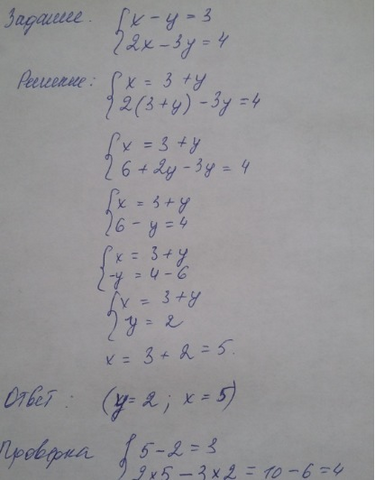 Задание. { x - y = 3
2x - 3y = 4
Решение: { x = 3 + y
2(3+y) - 3y = 4
{ x = 3 + y
6 + 2y - 3y = 4
{ x = 3 + y
6 - y = 4
{ x = 3 + y
-y = 4 - 6
{ x = 3 + y
y = 2
x = 3 + 2 = 5.
Ответ: (y = 2; x = 5)
Проверка { 5 - 2 = 3
2×5 - 3×2 = 10 - 6 = 4